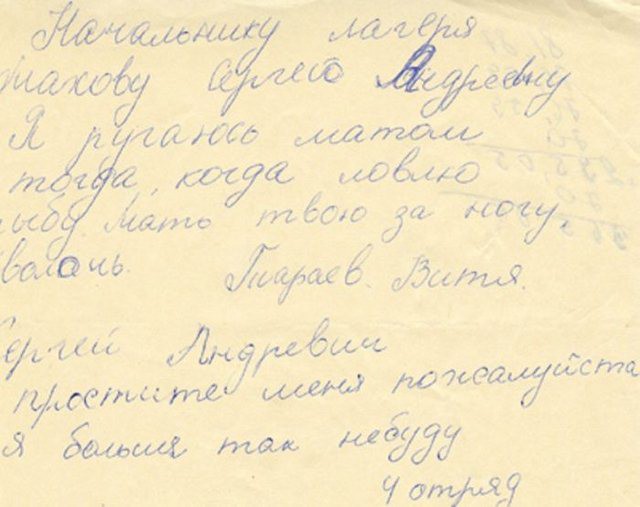 Начальнику лагеря
Сергею Андреевну
Я ругаюсь матом
тогда, когда ловлю
рыбу. Мать твою за ногу,
сволочь. Тараев. Витя.
Сергей Андревич
простите меня пожалуйста
я больше так небуду
4 отряд